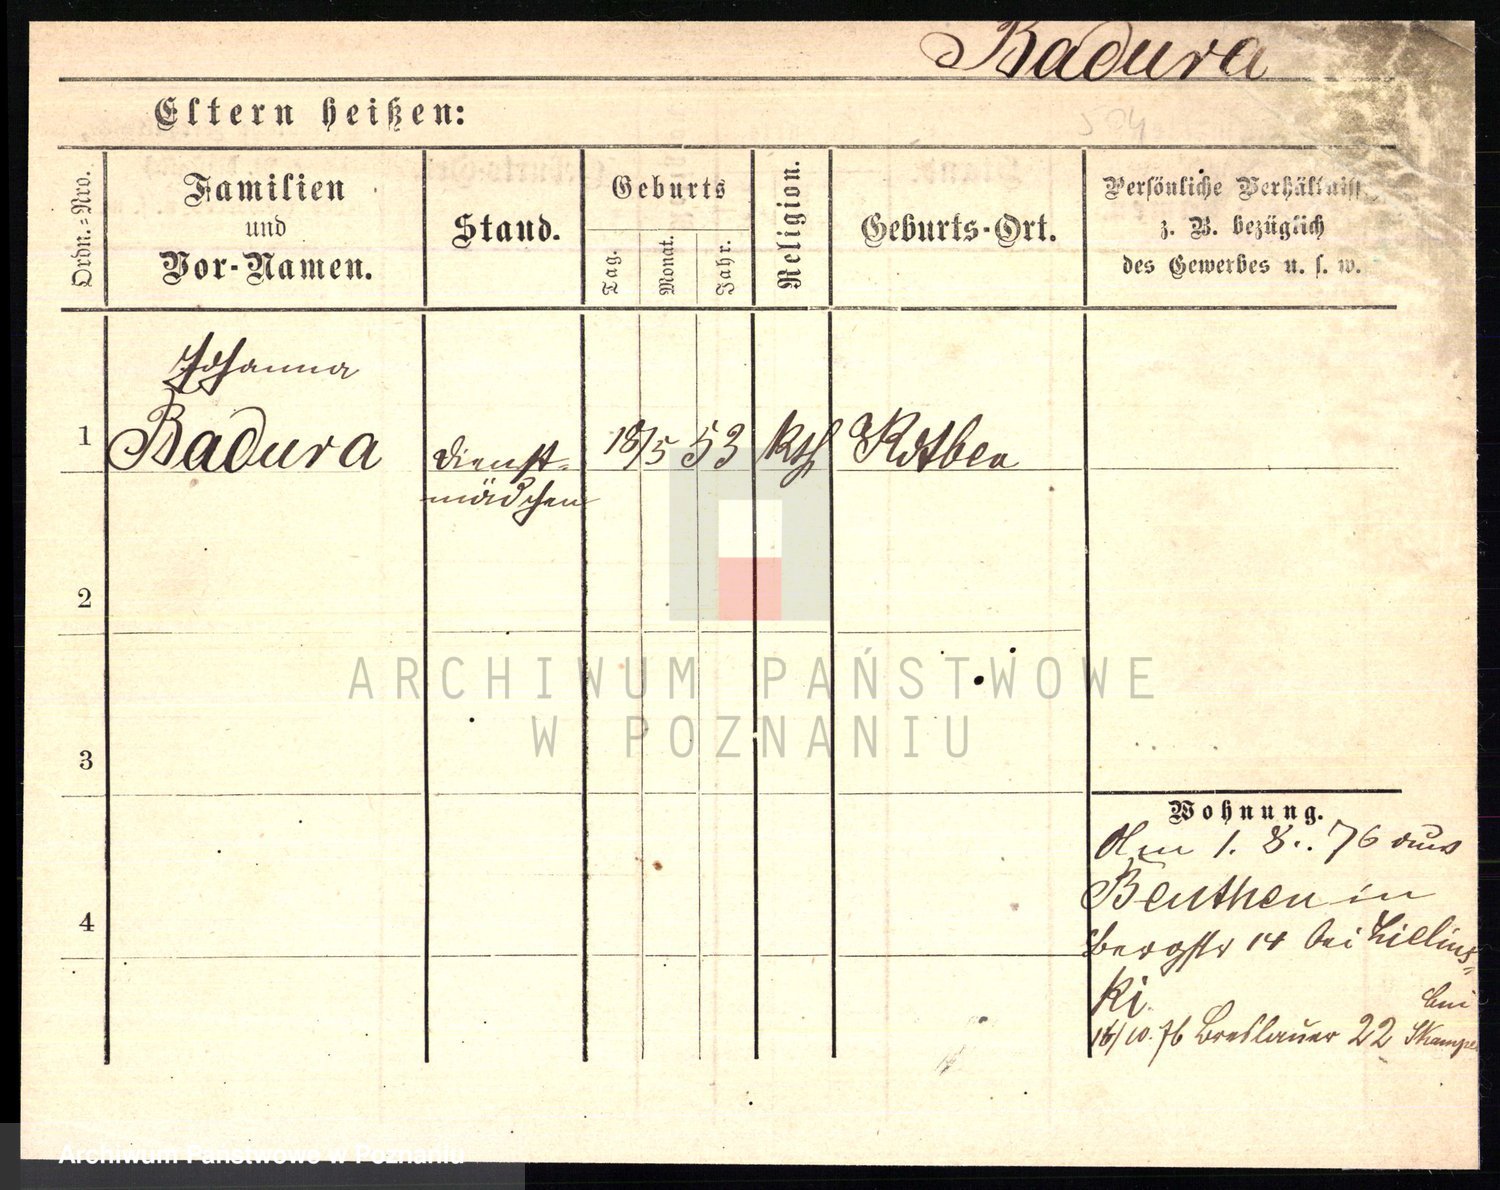 Badura
Eltern heißen:
Ordn.-Nro.
Familien
und
Vor-Namen.
Stand.
Geburts
Tag.
Monat.
Jahr.
Religion.
Geburts-Ort.
Persönliche Verhältniss
z. B. bezüglich
des Gewerbes u. s. w.
Johanna
1 Badura
Dienst-
mädchen
18/5 53 kth Kotben
2
3
4
ARCHIWUM PAŃSTWOWE
W POZNANIU
Wohnung.
Am 1. 8. 76 aus
Beuthen in
Bergstr 14 bei Zielins-
ki
bei
16/10. 76 Breslauer 22
Archiwum Państwowe w Poznaniu